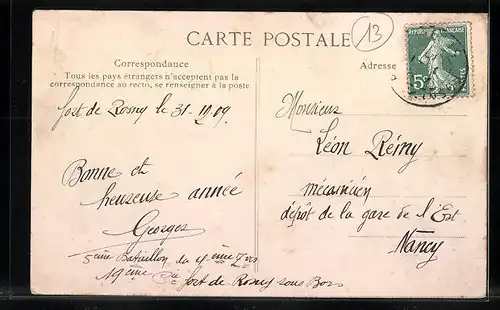 CARTE POSTALE
13
RÉPUBLIQUE FRANÇAISE
5c
POSTES
Correspondance
Tous les pays étrangers n'acceptent pas la
correspondance au recto, se renseigner à la poste
Adresse
fort de Rosny le 31-12-09
Bonne et
heureuse année
Georges
5ième Bataillon du 4ième Zvs
19ième Cie fort de Rosny sous Bois
Monsieur
Léon Rémy
mécanicien
dépôt de la gare de l'Est
Nancy